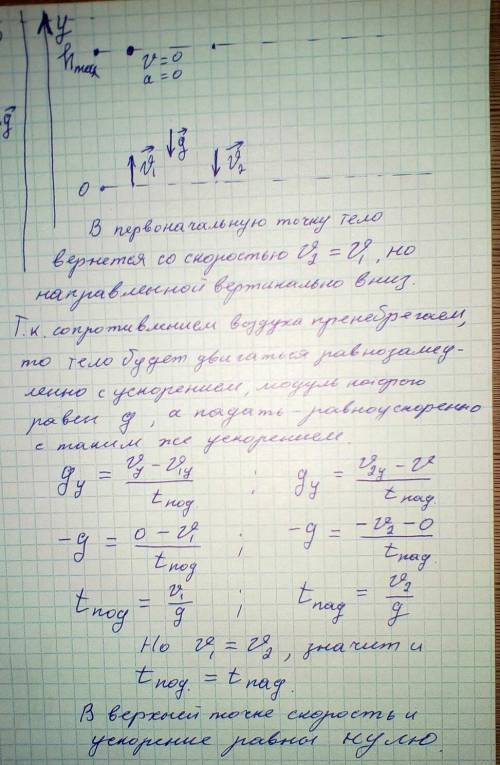 y
h max
v = 0
a = 0
g⃗
g⃗
v⃗₁
v⃗₂
0
В первоначальную точку тело
вернется со скоростью v₂ = v₁, но
направленной вертикально вниз.
Т.к. сопротивлением воздуха пренебрегаем,
то тело будет двигаться равнозамед-
ленно с ускорением, модуль которого
равен g, а падать - равноускоренно
с таким же ускорением.
g_y = (v_y − v₁y) / t под ; g_y = (v₂y − v) / t пад.
−g = (0 − v₁) / t под ; −g = (−v₂ − 0) / t пад.
t под = v₁ / g ; t пад = v₂ / g
Но v₁ = v₂, значит и
t под. = t пад.
В верхней точке скорость и
ускорение равны нулю.